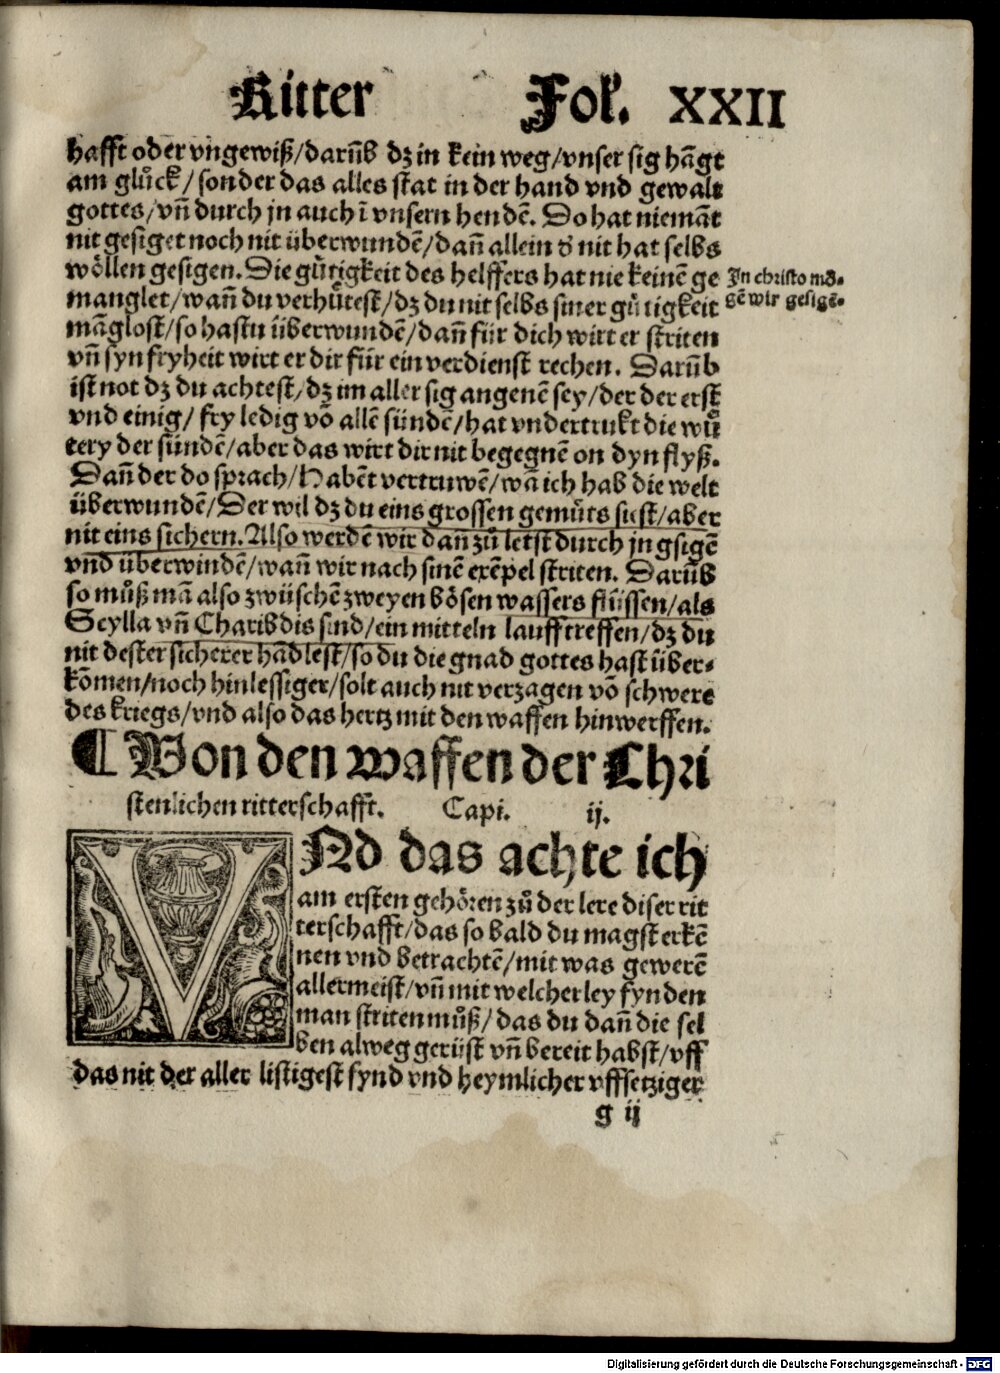 Ritter Fol. XXII
hafft oder vngewiß/darum̃b dz in kein weg/vnser sig hãgt
am glúck/sonder das alles stat in der hand vnd gewalt
gottes/vñ durch jn auch ĩ vnsern hendẽ. Do hat niemãt
nit gesiget noch nit überwundẽ/dañ allein d̕ nit hat selbs
wöllen gesigen. Die gůtigkeit des helffers hat nie keinẽ ge
manglet/wañ du verhůtest/dz du nit selbs siner gůtigkeit
mãglost/so hastu überwundẽ/dañ für dich wirt er striten
vñ syn fryheit wirt er dir für ein verdienst rechen. Darum̃b
ist not dz du achtest/dz im aller sig angenẽ sey/der der erst
vnd einig/ fry ledig võ allẽ sündẽ/hat vndertrukt die wů
tery der sündẽ/aber das wirt dir nit begegnẽ on dyn flyß.
Dañ der do sprach/Habẽt vertruwẽ/wã ich hab die welt
überwundẽ/Der wil dz du eins grossen gemůts syst/aber
nit eins sichern. Also werdẽ wir dañ zů letst durch jn gsigẽ
vnd überwindẽ/wañ wir nach sinẽ exẽpel striten. Darum̃b
so můß mã also zwüschẽ zweyen bösen wassers flüssen/als
Scylla vñ Charibdis sind/ein mitteln lauff treffen/dz du
nit dester sicherer hãdlest/so du die gnad gottes hast über-
kõmen/noch hinlessiger/solt auch nit verzagen võ schwere
des kriegs/vnd also das hertz mit den waffen hinwerffen.
In christo mö-
gẽ wir gesigẽ.
¶ Von den waffen der Chri
stenlichen ritterschafft. Capi. ij.
VNd das achte ich
am ersten gehören zů der lere diser rit
terschafft/das so bald du magst erkẽ
nen vnd betrachtẽ/mit was gewerẽ
allermeist/vñ mit welcherley fynden
man striten můß/das du dañ die sel
ben alweg gerüst vñ bereit habst/vff
das nit der aller listigest fynd vnd heymlicher vffsetziger
g ij
Digitalisierung gefördert durch die Deutsche Forschungsgemeinschaft - DFG